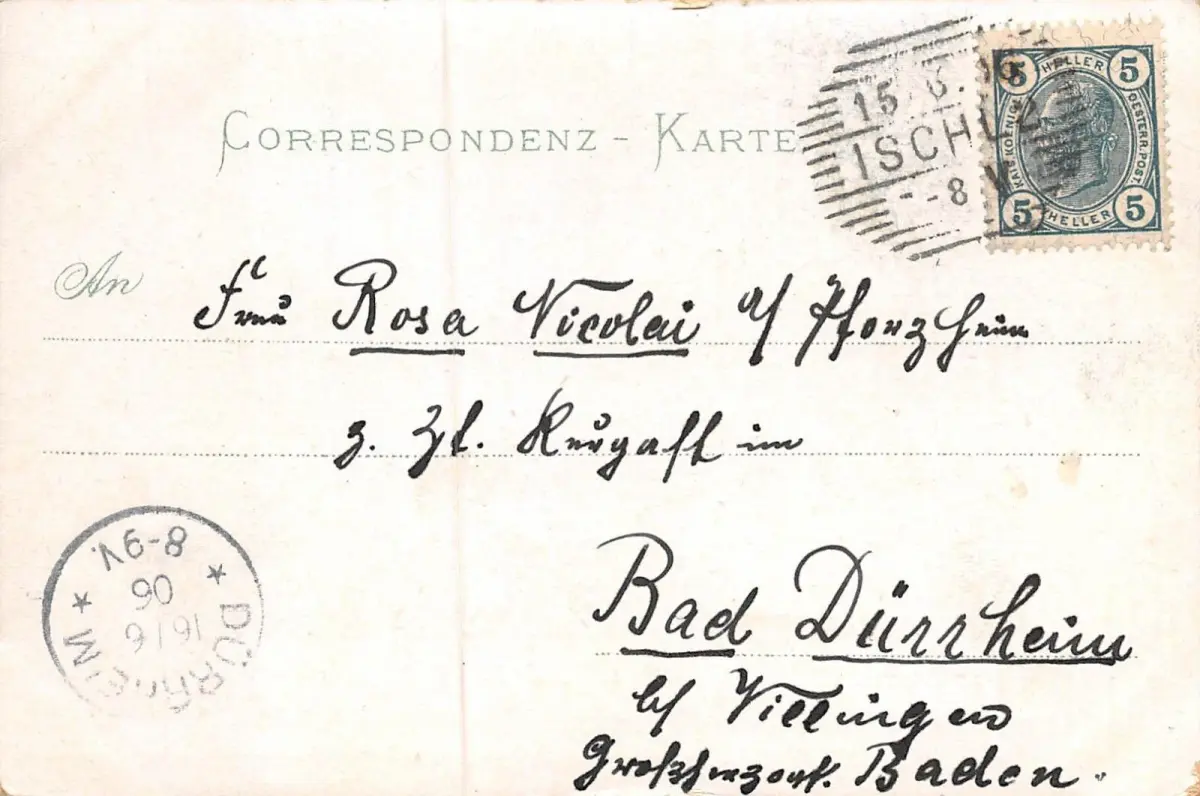 CORRESPONDENZ - KARTE
15 6. 06
ISCHL 2
--8 V
5 HELLER 5
KAIS. KOENIGL. OESTERR. POST.
5 HELLER 5
An Frau Rosa Nicolai a/ Pforzheim
z. Zt. Kurgast im
Bad Dürrheim
b/ Villingen
Grossherzogt. Baden.
DÜRRHEIM
16/6
06
8-9V.